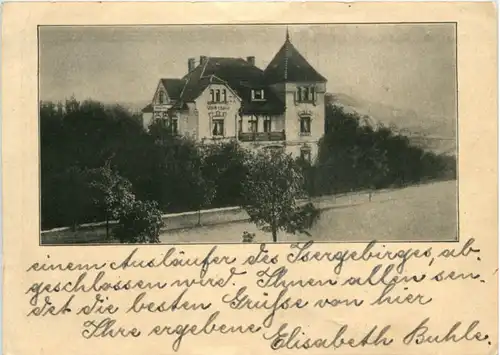 einem Ausläufer des Isergebirges, ab-
geschlossen wird. Ihnen allen sen-
det die besten Grüße von hier
Ihre ergebene Elisabeth Buhle.